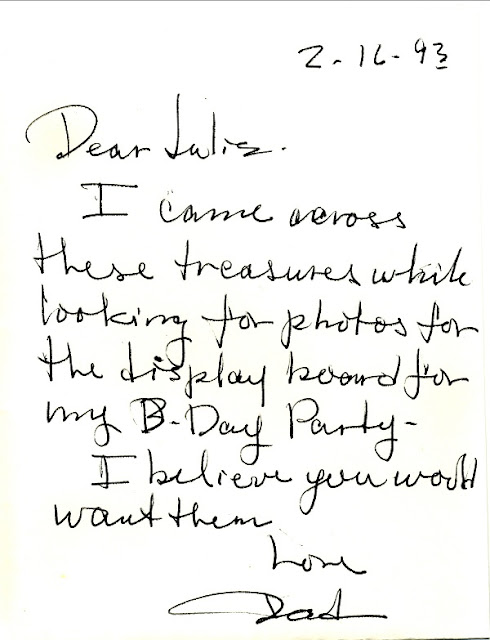 2-16-93
Dear Julie.
I came across
these treasures while
looking for photos for
the display board for
my B-Day Party-
I believe you would
want them
Love
Dad